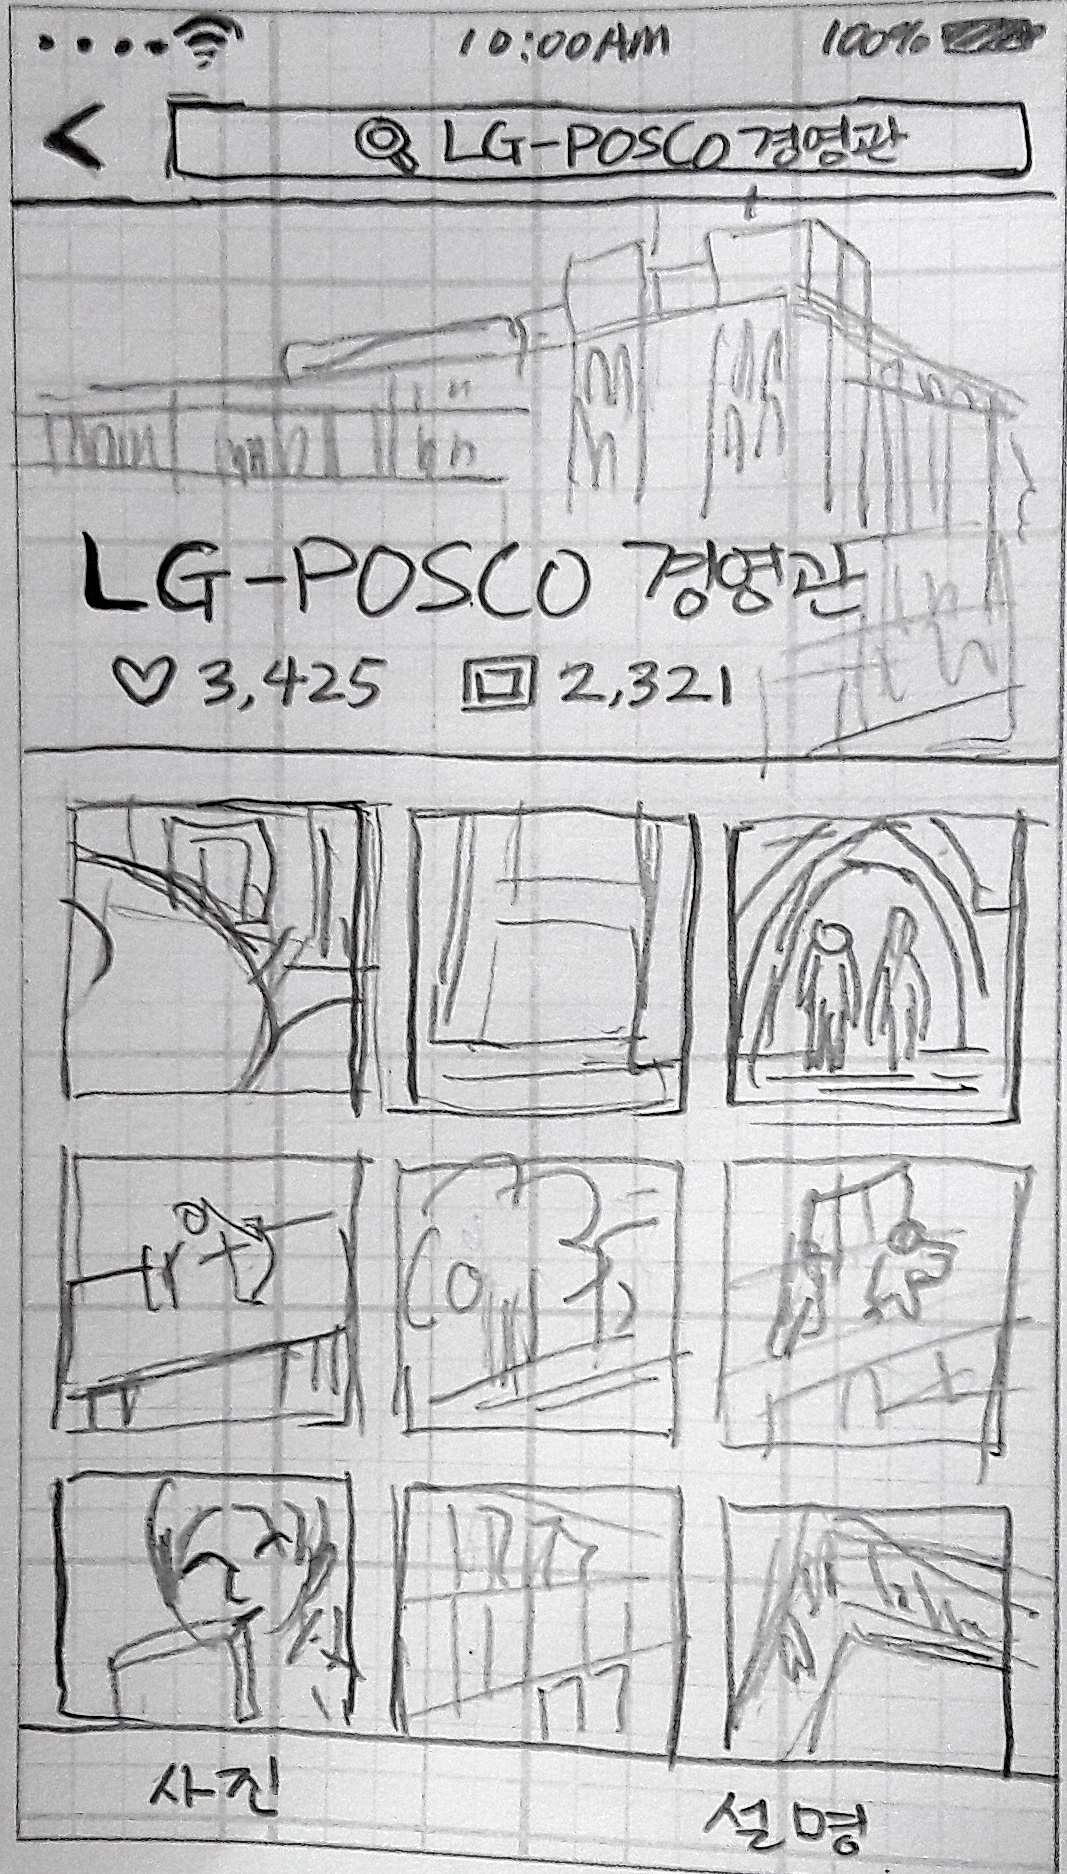 10:00AM 100%
LG-POSCO 경영관
LG-POSCO 경영관
3,425 2,321
사진 설명